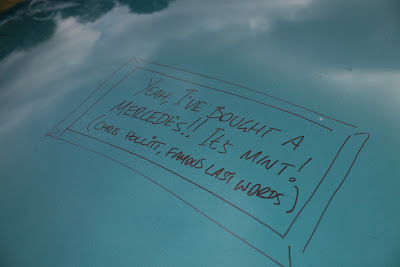 YEAH, I'VE BOUGHT A
MERCEDES!! IT'S MINT!
(CHRIS POLLITT, FAMOUS LAST WORDS)